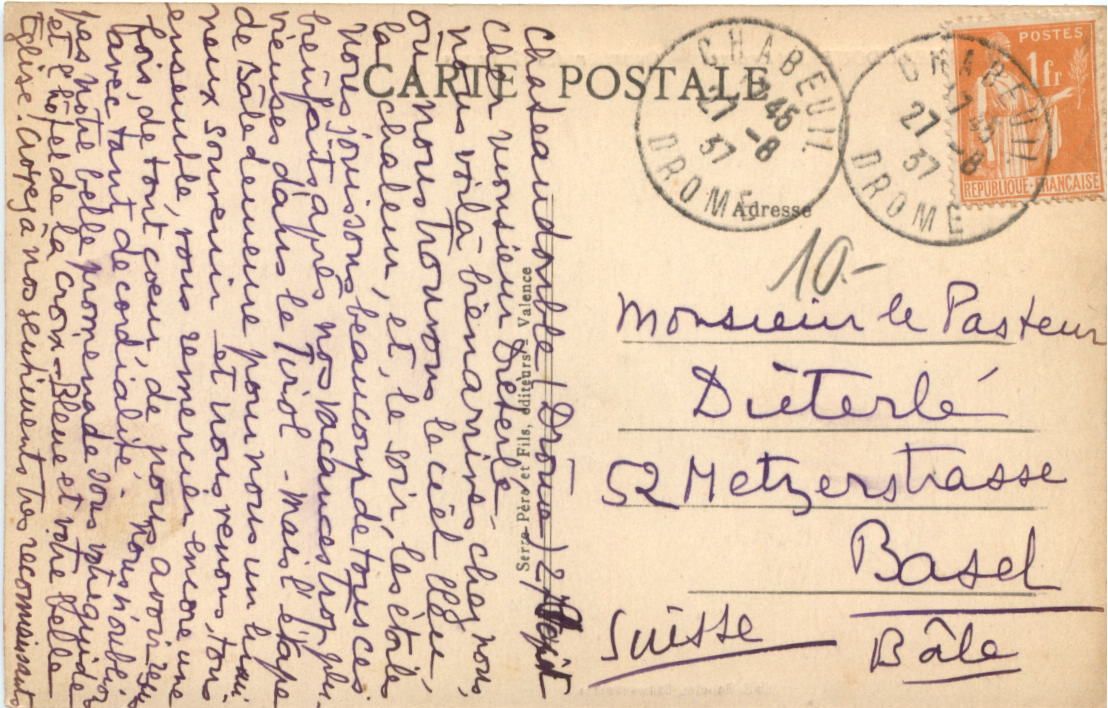 CARTE POSTALE
Adresse
Serre Père et Fils, éditeurs - Valence
POSTES
1 fr
REPUBLIQUE-FRANÇAISE
CHABEUIL
27-8
37
DROME
CHABEUIL
27-8
37
DROME
10.-
Monsieur le Pasteur
Dieterlé
52 Metzerstrasse
Basel
Suisse
Bâle
Chateaudouble (Drôme) 27
Cher monsieur Dieterlé
nous voilà bien arrivés chez nous,
où nous trouvons le ciel bleu,
la chaleur, et, le soir, les étoiles
Nous jouissons beaucoup de tous ces
bienfaits après nos vacances trop plu-
vieuses dans le Tirol - mais l'étape
de Bâle demeure pour nous un lumi
neux souvenir et nous venons, tous
ensemble, vous remercier encore une
fois, de tout coeur, de nous avoir reçus
avec tant de cordialité. Nous n'oublions
pas notre belle promenade sous votre guide
et l'hôtel de la Croix-Bleue et votre belle
Eglise. Croyez à nos sentiments très reconnaissants